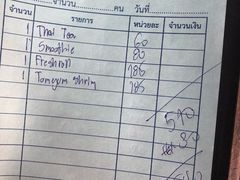 จำนวน คน วันที่
จำนวน รายการ หน่วยละ จำนวนเงิน
1 Thai Tea 60
1 Smoothie 80
1 Freshroll 185
1 Tomyum Shrim 185
510